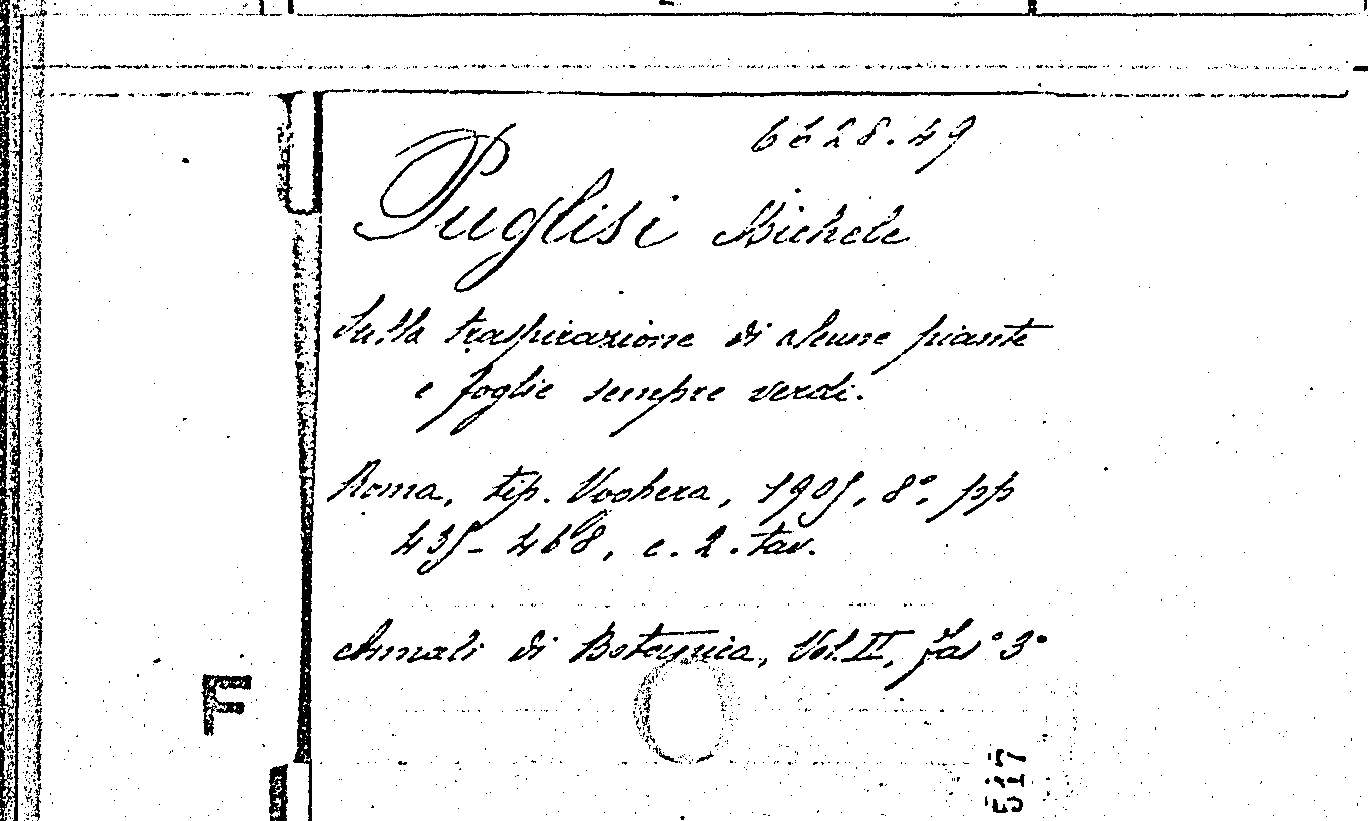 6628.49
Puglisi Michele
Sulla traspirazione di alcune piante
e foglie sempre verdi.
Roma, tip. Voghera, 1905, 8°, pp
435-468, c. 2. tav.
Annali di Botanica, Vol. II, fas° 3°
F
517